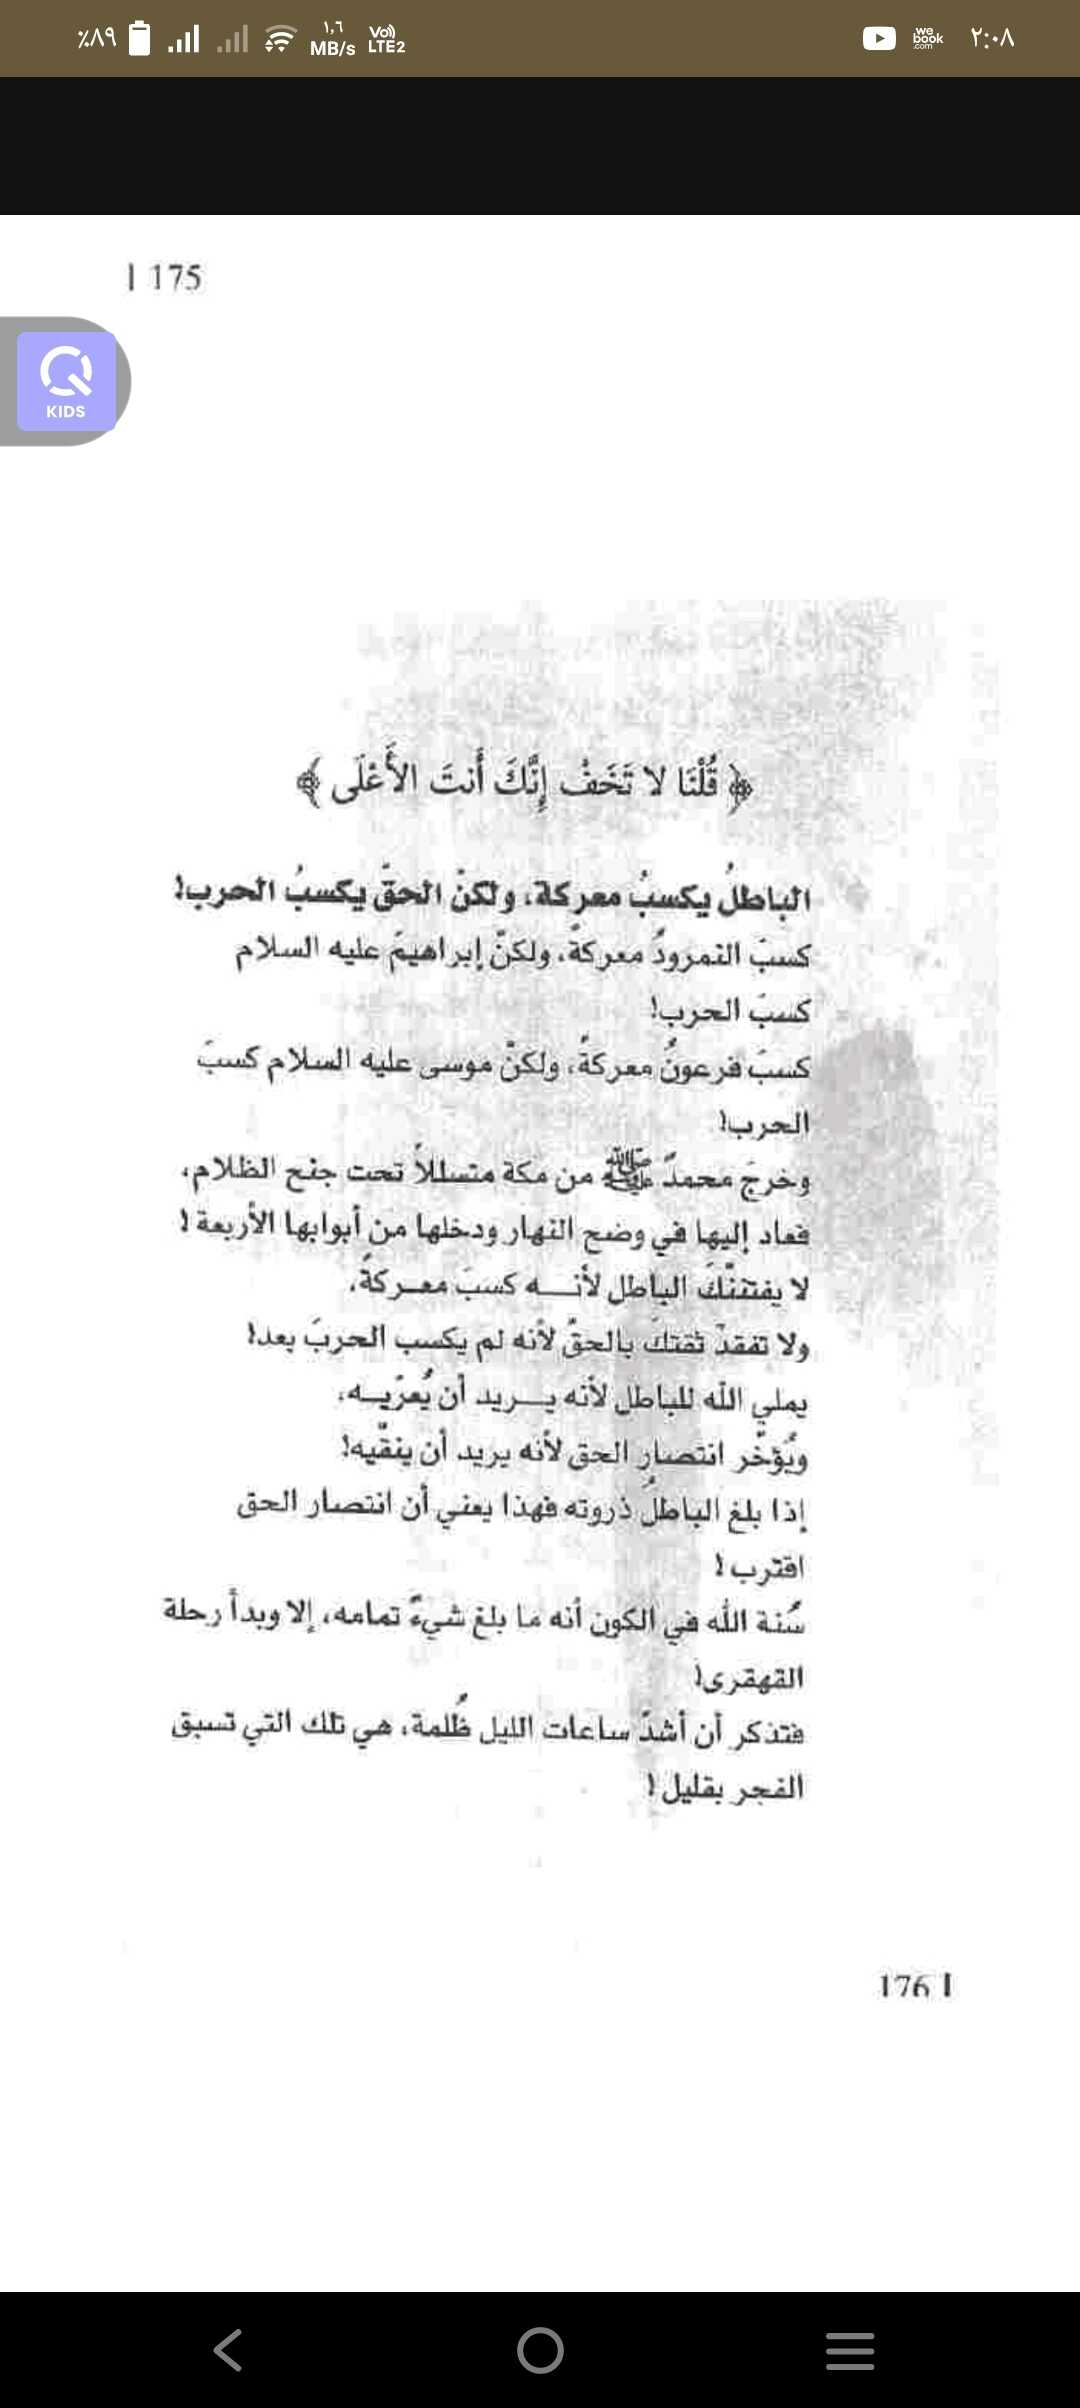 ٪٨٩ ١,٦ MB/s Vo) LTE2 we book .com ٢:٠٨
175 |
Q KIDS
﴿ قُلْنَا لا تَخَفْ إِنَّكَ أَنتَ الأَعْلَى ﴾
الباطلُ يكسبُ معركة، ولكنّ الحقّ يكسبُ الحرب!
كسبَ النمرودُ معركةً، ولكنّ إبراهيمَ عليه السلام
كسبَ الحرب!
كسبَ فرعونُ معركةً، ولكنّ موسى عليه السلام كسبَ
الحرب!
وخرجَ محمدٌ ﷺ من مكة متسللاً تحت جنح الظلام،
فعاد إليها في وضح النهار ودخلها من أبوابها الأربعة!
لا يفتننّكَ الباطل لأنـــه كسبَ معـركةً،
ولا تفقدْ ثقتكَ بالحقّ لأنه لم يكسب الحربَ بعد!
يملي الله للباطل لأنه يـــريد أن يُعرّيــه،
ويُؤخّر انتصار الحق لأنه يريد أن ينقّيه!
إذا بلغ الباطلُ ذروته فهذا يعني أن انتصار الحق
اقترب!
سُنة الله في الكون أنه ما بلغ شيءٌ تمامه، إلا وبدأ رحلة
القهقرى!
فتذكر أن أشدّ ساعات الليل ظُلمة، هي تلك التي تسبق
الفجر بقليل!
176 |